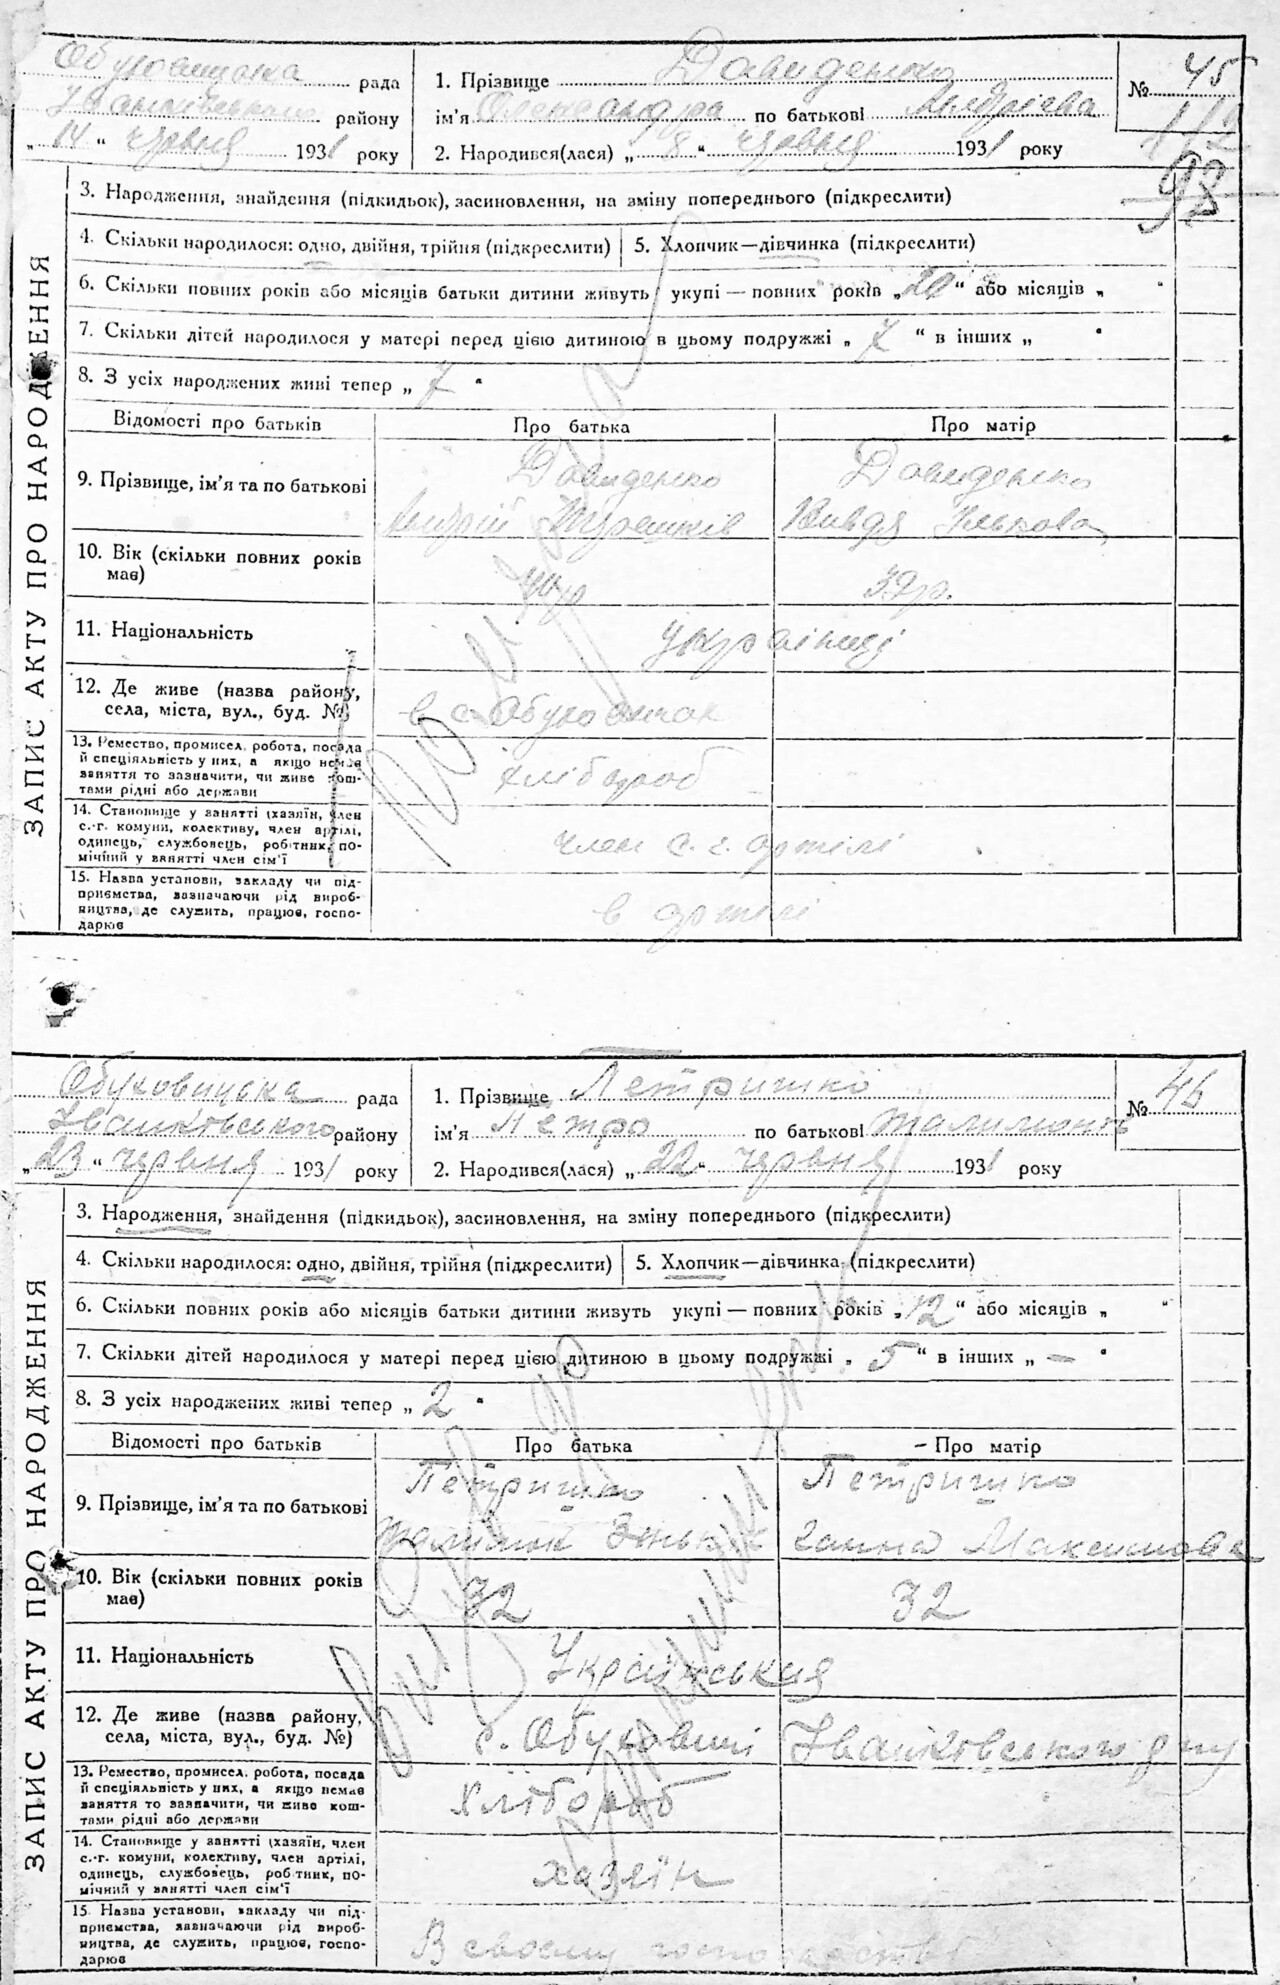 Обуховицька рада
Іванківського району
„ 14 “ червня 1931 року
1. Прізвище Давиденко
ім'я Олександра по батькові Андрієва
2. Народився(лася) „ 8 “ червня 1931 року
№ 45
112
98
ЗАПИС АКТУ ПРО НАРОДЖЕННЯ
3. Народження, знайдення (підкидьок), засиновлення, на зміну попереднього (підкреслити)
4. Скільки народилося: одно, двійня, трійня (підкреслити) 5. Хлопчик—дівчинка (підкреслити)
6. Скільки повних років або місяців батьки дитини живуть укупі — повних років „ 20 “ або місяців „ “
7. Скільки дітей народилося у матері перед цією дитиною в цьому подружжі „ 7 “ в інших „ “
8. З усіх народжених живі тепер „ 7 “
Відомості про батьків Про батька Про матір
9. Прізвище, ім'я та по батькові Давиденко Давиденко
Андрій
10. Вік (скільки повних років
має) 39р.
11. Національність українці
12. Де живе (назва району,
села, міста, вул., буд. №) в с. Обуховичах
13. Ремество, промисел, робота, посада
й спеціяльність у них, а якщо немає
заняття то зазначити, чи живе кош-
тами рідні або держави хлібороб
14. Становище у занятті (хазяїн, член
с.-г. комуни, колективу, член артілі,
одинець, службовець, робітник, по-
мічний у занятті член сім'ї член с. г. артілі
15. Назва установи, закладу чи під-
приємства, зазначаючи рід вироб-
ництва, де служить, працює, госпо-
дарює в артілі
Обуховицька рада
Іванківського району
„ 23 “ червня 1931 року
1. Прізвище Петришко
ім'я Петро по батькові
2. Народився(лася) „ 22 “ червня 1931 року
№ 46
ЗАПИС АКТУ ПРО НАРОДЖЕННЯ
3. Народження, знайдення (підкидьок), засиновлення, на зміну попереднього (підкреслити)
4. Скільки народилося: одно, двійня, трійня (підкреслити) 5. Хлопчик—дівчинка (підкреслити)
6. Скільки повних років або місяців батьки дитини живуть укупі — повних років „ 12 “ або місяців „ “
7. Скільки дітей народилося у матері перед цією дитиною в цьому подружжі „ 5 “ в інших „ — “
8. З усіх народжених живі тепер „ 2 “
Відомості про батьків Про батька Про матір
9. Прізвище, ім'я та по батькові Петришко Петришко
Ганна Максимова
10. Вік (скільки повних років
має) 32 32
11. Національність Українська
12. Де живе (назва району,
села, міста, вул., буд. №) с. Обуховичі Іванківського р-ну
13. Ремество, промисел, робота, посада
й спеціяльність у них, а якщо немає
заняття то зазначити, чи живе кош-
тами рідні або держави Хлібороб
14. Становище у занятті (хазяїн, член
с.-г. комуни, колективу, член артілі,
одинець, службовець, робітник, по-
мічний у занятті член сім'ї хазяїн
15. Назва установи, закладу чи під-
приємства, зазначаючи рід вироб-
ництва, де служить, працює, госпо-
дарює В своєму господарстві